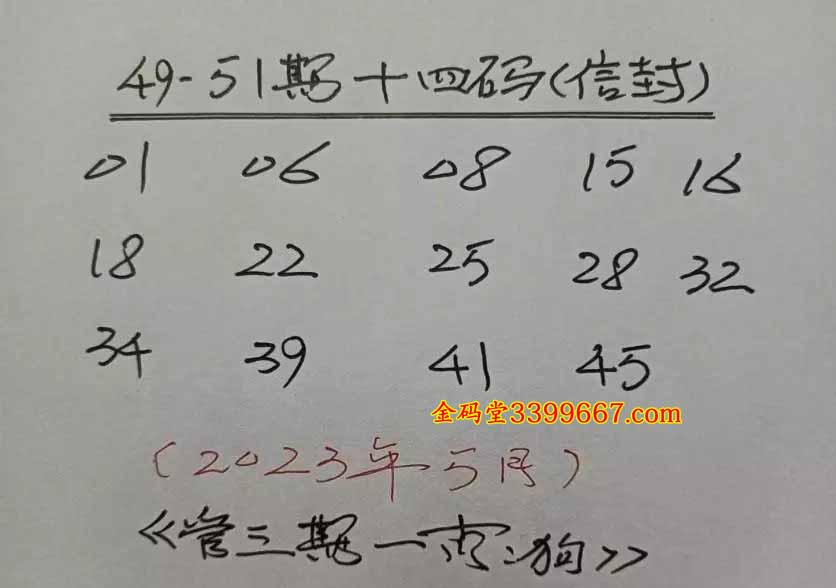 49-51期十四码(信封)
01 06 08 15 16
18 22 25 28 32
34 39 41 45
金码堂3399667.com
(2023年5月)
《管三期一肖:狗》